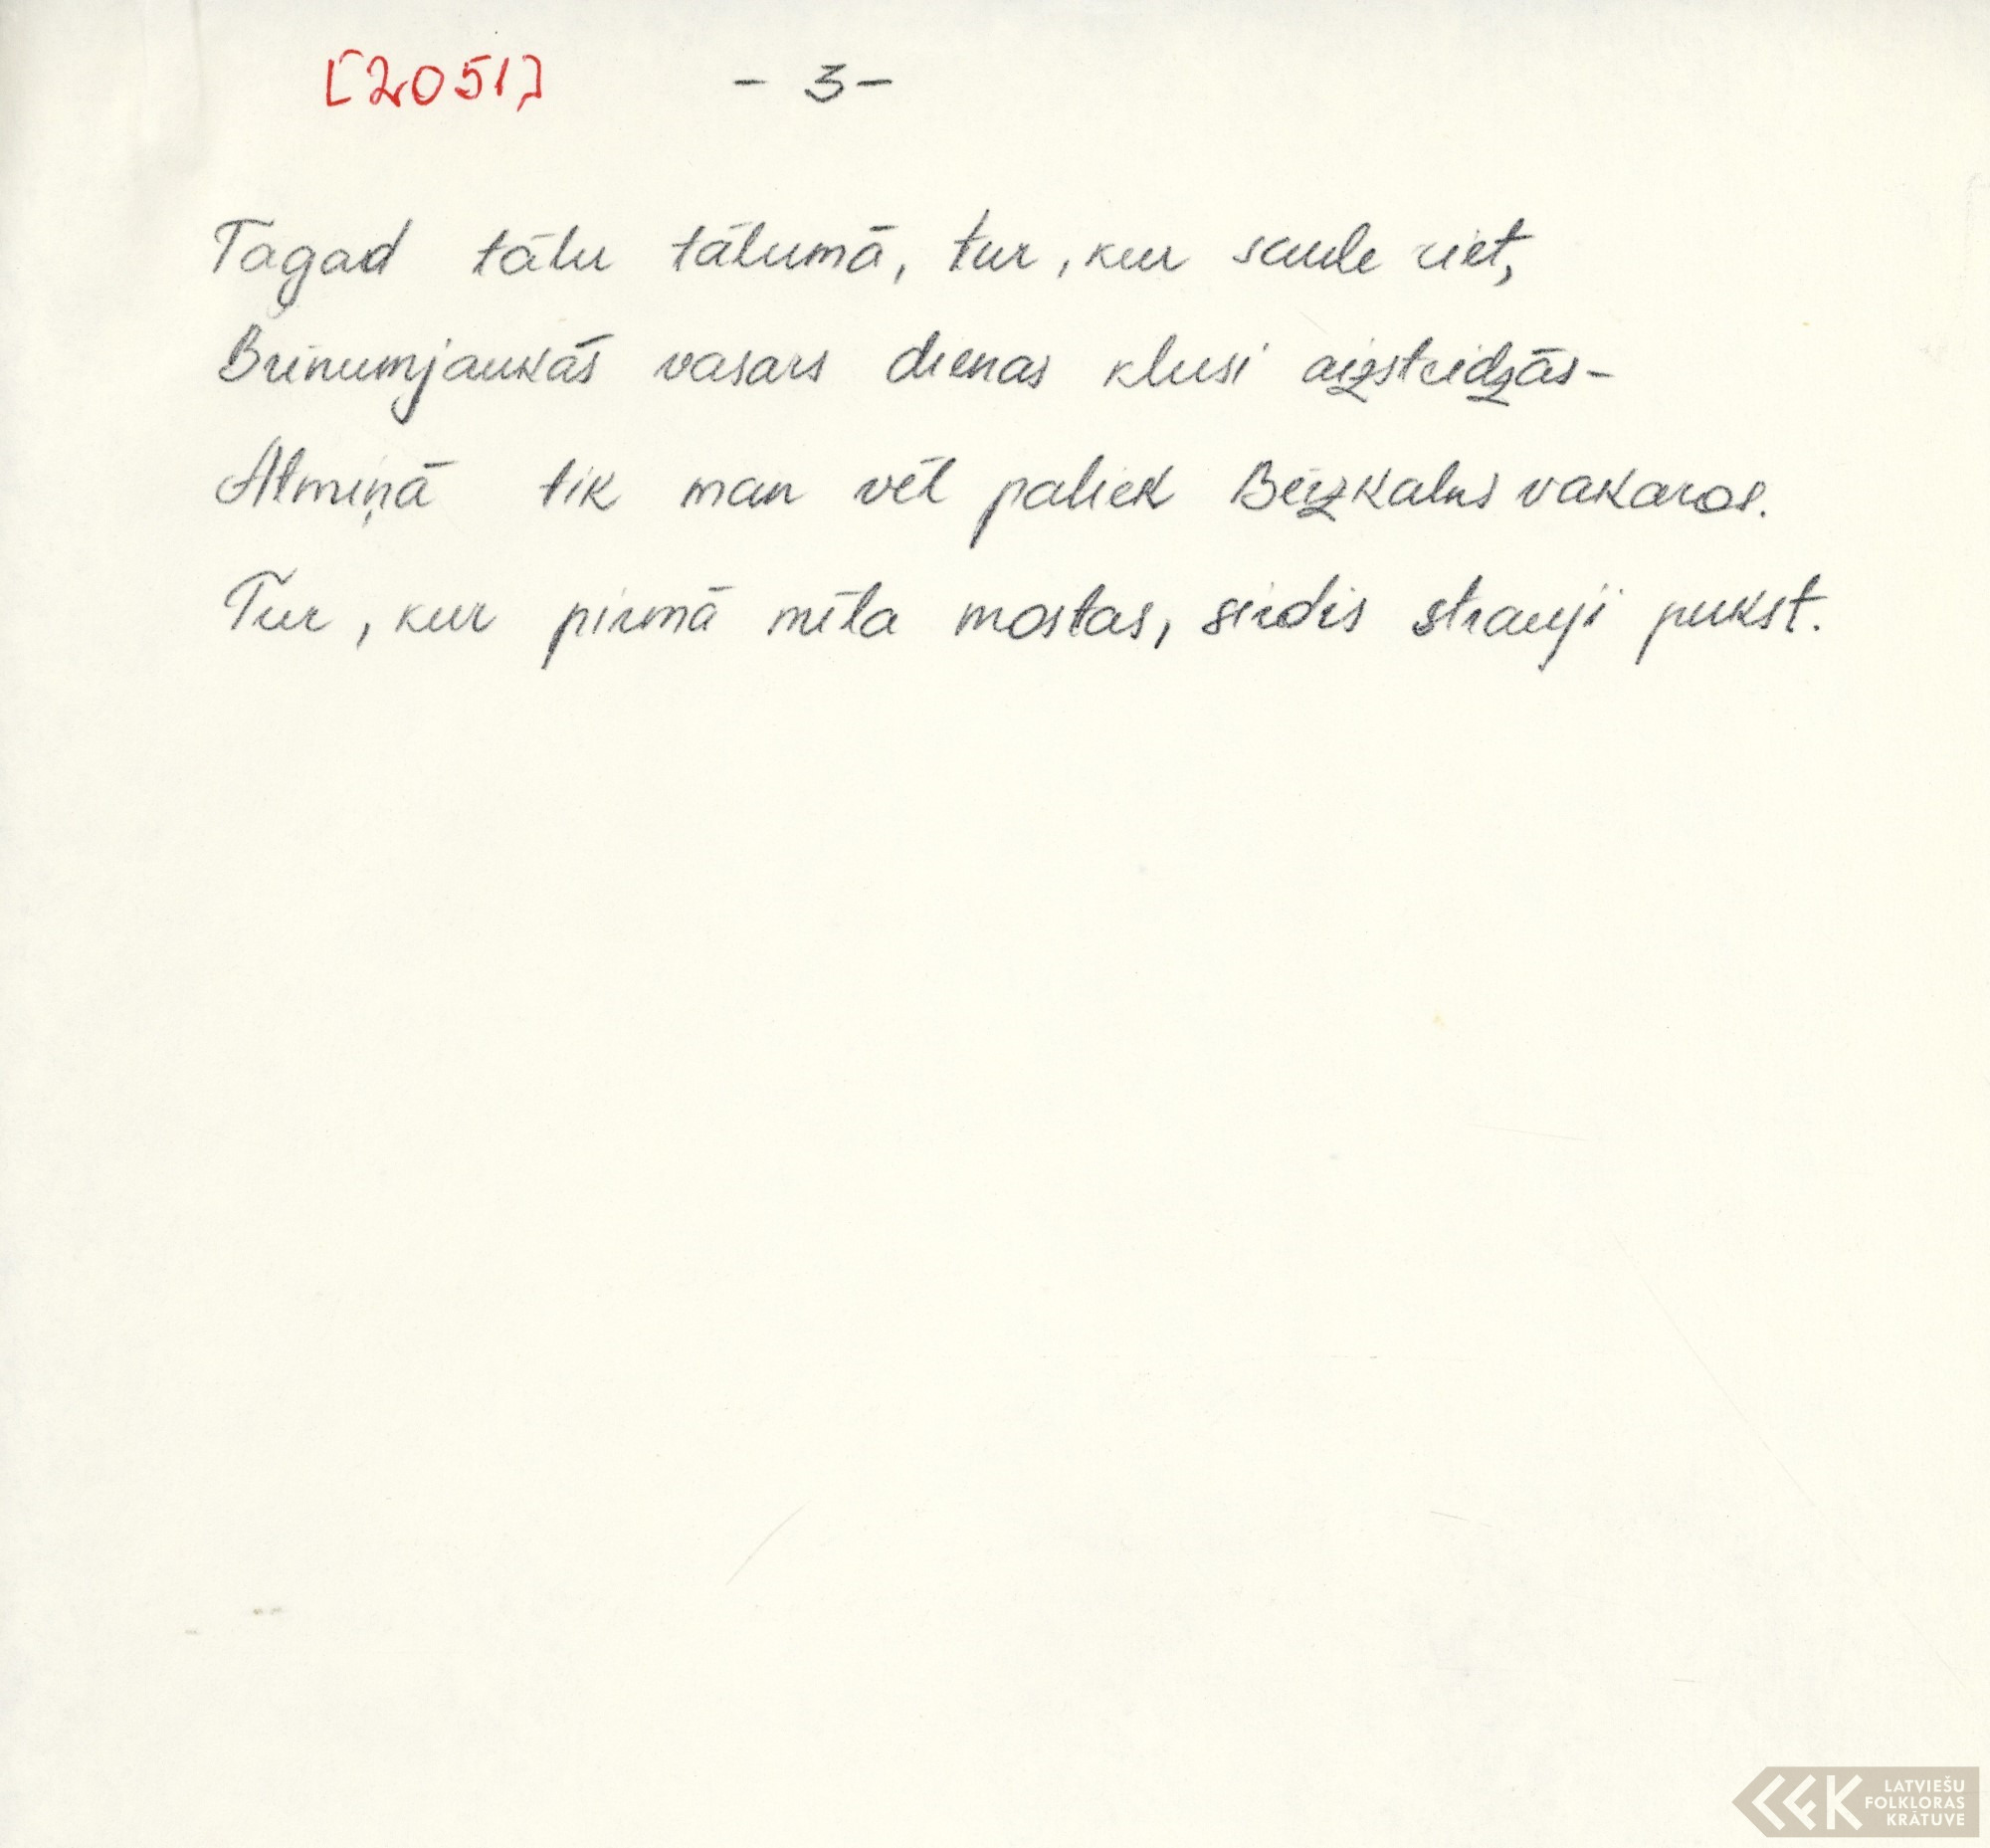 [2051] - 3 -
Tagad tālu tālumā, tur, kur saule riet,
Brīnumjaukās vasars dienas klusi aizsteidzās-
Atmiņā tik man vēl paliek Bērzkalns vakaros.
Tur, kur pirmā mīla mostas, sirdis strauji pukst.
LATVIEŠU
FOLKLORAS
KRĀTUVE